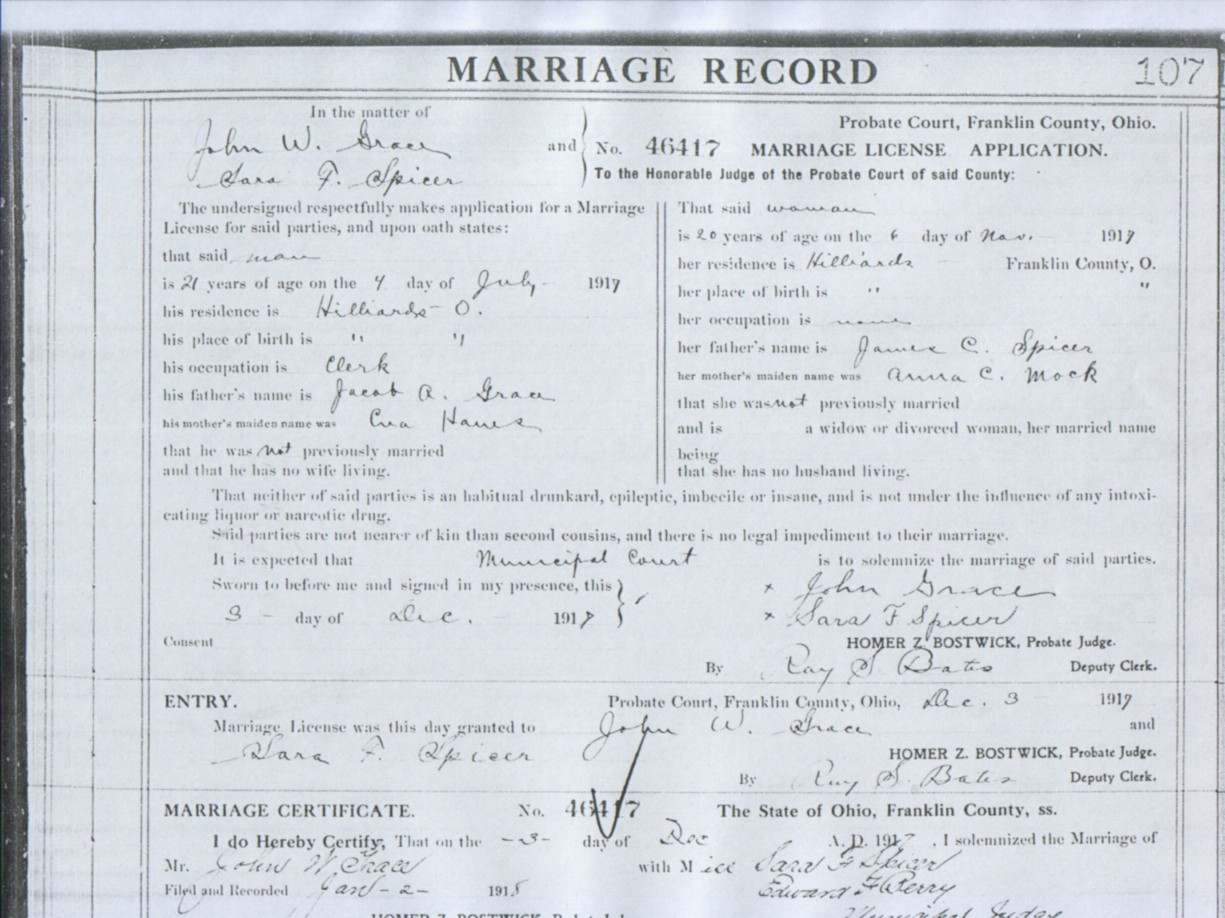 MARRIAGE RECORD 107
In the matter of
John W. Grace and
Sara F. Spicer
Probate Court, Franklin County, Ohio.
No. 46417 MARRIAGE LICENSE APPLICATION.
To the Honorable Judge of the Probate Court of said County:
The undersigned respectfully makes application for a Marriage
License for said parties, and upon oath states:
that said man
is 21 years of age on the 4 day of July 1917
his residence is Hilliards O.
his place of birth is " "
his occupation is Clerk
his father's name is Jacob A. Grace
his mother's maiden name was Eva Hanes
that he was not previously married
and that he has no wife living.
That said woman
is 20 years of age on the 6 day of Nov. 1917
her residence is Hilliards Franklin County, O.
her place of birth is " "
her occupation is
her father's name is James C. Spicer
her mother's maiden name was Anna C. Mock
that she was not previously married
and is a widow or divorced woman, her married name
being
that she has no husband living.
That neither of said parties is an habitual drunkard, epileptic, imbecile or insane, and is not under the influence of any intoxi-
cating liquor or narcotic drug.
Said parties are not nearer of kin than second cousins, and there is no legal impediment to their marriage.
It is expected that Municipal Court is to solemnize the marriage of said parties.
Sworn to before me and signed in my presence, this
3 - day of Dec. 1917
x John Grace
x Sara F Spicer
Consent
HOMER Z. BOSTWICK, Probate Judge.
By Ray S. Bates Deputy Clerk.
ENTRY. Probate Court, Franklin County, Ohio, Dec. 3 1917
Marriage License was this day granted to John W. Grace and
Sara F. Spicer
HOMER Z. BOSTWICK, Probate Judge.
By Ray S. Bates Deputy Clerk.
MARRIAGE CERTIFICATE. No. 46417 The State of Ohio, Franklin County, ss.
I do Hereby Certify, That on the -3- day of Dec A. D. 1917 . I solemnized the Marriage of
Mr. John W Grace with Miss Sara F Spicer
Filed and Recorded Jan - 2 - 1918 Edward F Berry
Municipal Judge
HOMER Z. BOSTWICK, Probate Judge